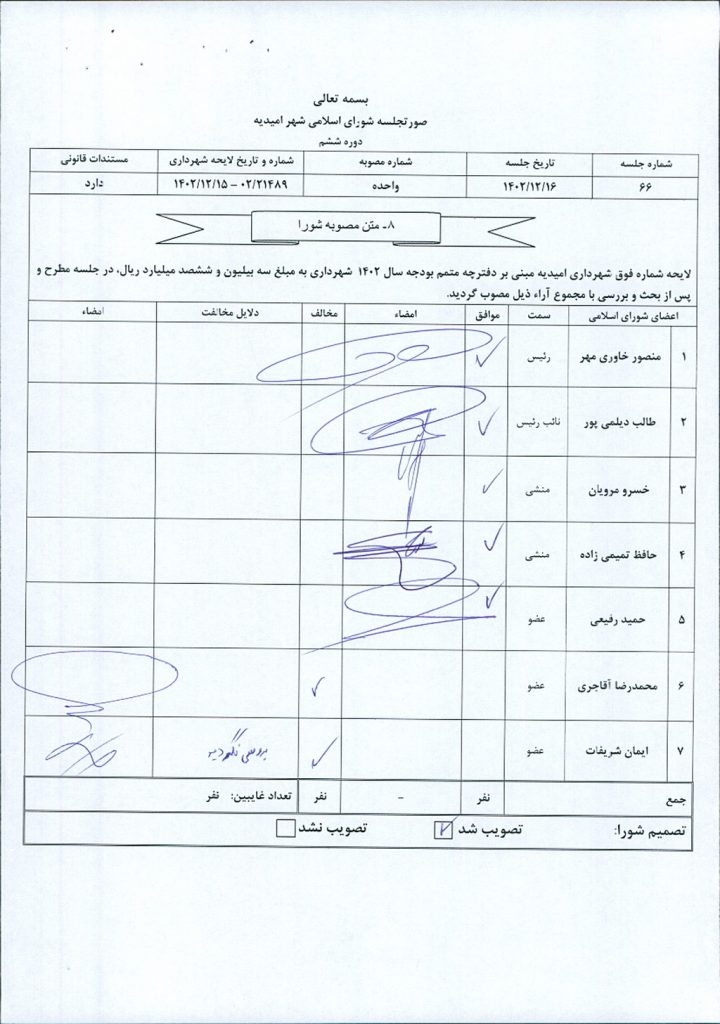 بسمه تعالی
صورتجلسه شورای اسلامی شهر امیدیه
دوره ششم
شماره جلسه تاریخ جلسه شماره مصوبه شماره و تاریخ لایحه شهرداری مستندات قانونی
۶۶ ۱۴۰۲/۱۲/۱۶ واحده ۰۲/۲۱۴۸۹ – ۱۴۰۲/۱۲/۱۵ دارد
۸ـ متن مصوبه شورا
لایحه شماره فوق شهرداری امیدیه مبنی بر دفترچه متمم بودجه سال ۱۴۰۲ شهرداری به مبلغ سه بیلیون و ششصد میلیارد ریال، در جلسه مطرح و
پس از بحث و بررسی با مجموع آراء ذیل مصوب گردید.
اعضای شورای اسلامی سمت موافق امضاء مخالف دلایل مخالفت امضاء
۱ منصور خاوری مهر رئیس ✓
۲ طالب دیلمی پور نائب رئیس ✓
۳ خسرو مرویان منشی ✓
۴ حافظ تمیمی زاده منشی ✓
۵ حمید رفیعی عضو ✓
۶ محمدرضا آقاجری عضو ✓
۷ ایمان شریفات عضو ✓ بررسی نگردید
جمع نفر - نفر تعداد غایبین: نفر
تصمیم شورا: تصویب شد ☑ تصویب نشد ☐